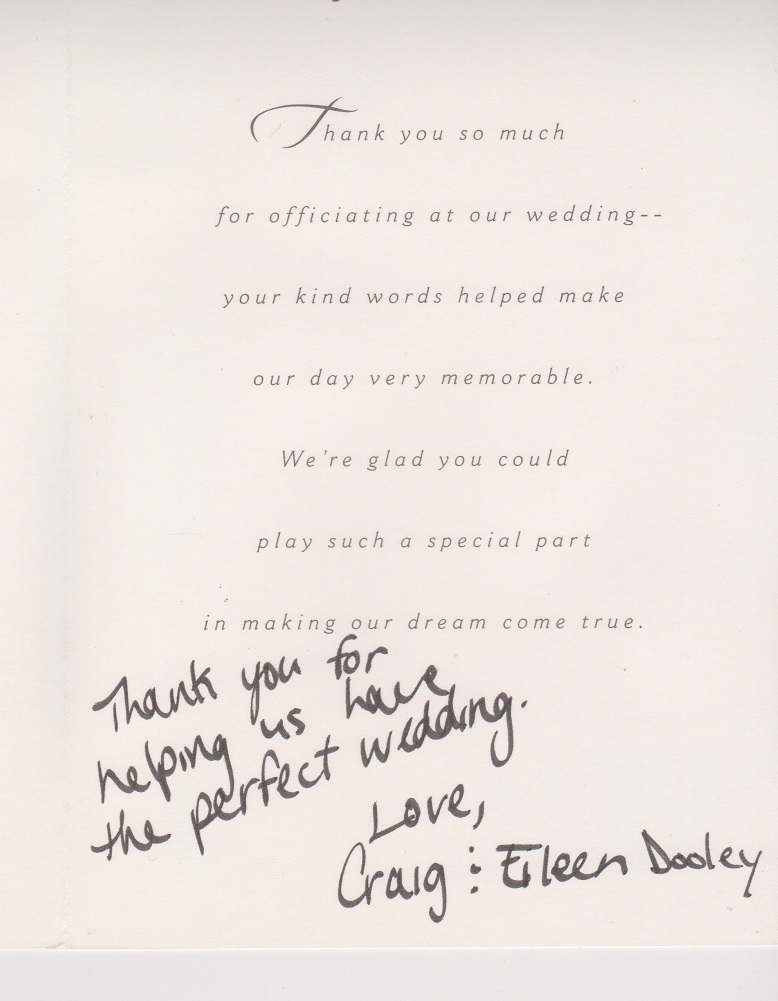 Thank you so much
for officiating at our wedding--
your kind words helped make
our day very memorable.
We're glad you could
play such a special part
in making our dream come true.
Thank you for
helping us have
the perfect wedding.
Love,
Craig & Eileen Dooley